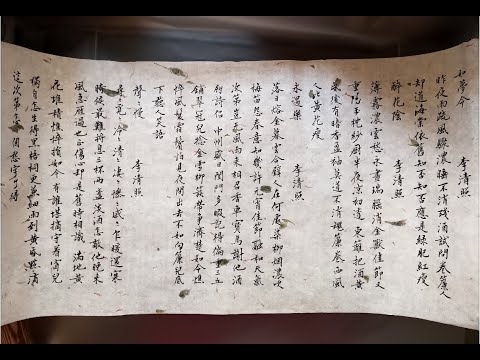 如夢令 李清照
昨夜雨疏風驟濃睡不消殘酒試問卷簾人
却道海棠依舊知否知否應是綠肥紅瘦
醉花陰 李清照
薄霧濃雲愁永晝瑞腦消金獸佳節又
重陽玉枕紗廚半夜涼初透東籬把酒黃
昏後有暗香盈袖莫道不消魂簾卷西風
人比黃花瘦
永遇樂 李清照
落日熔金暮雲合璧人在何處染柳烟濃吹
梅笛怨春意知幾許元宵佳節融和天氣
次第豈無風雨來相召香車寶馬謝他酒
朋詩侶 中州盛日閨門多暇記得偏重三五
鋪翠冠兒捻金雪柳簇帶爭濟楚如今憔
悴風鬟霜鬢怕見夜間出去不如向簾兒底
下聽人笑語
聲〻慢 李清照
尋〻覓〻冷〻清〻淒〻慘〻戚〻乍暖還寒
時候最難將息三杯兩盞淡酒怎敵他晚來
風急雁過也正傷心却是舊時相識 滿地黃
花堆積憔悴損如今有誰堪摘守着窗兒
獨自怎生得黑梧桐更兼細雨到黃昏點滴
這次第怎一個愁字了得